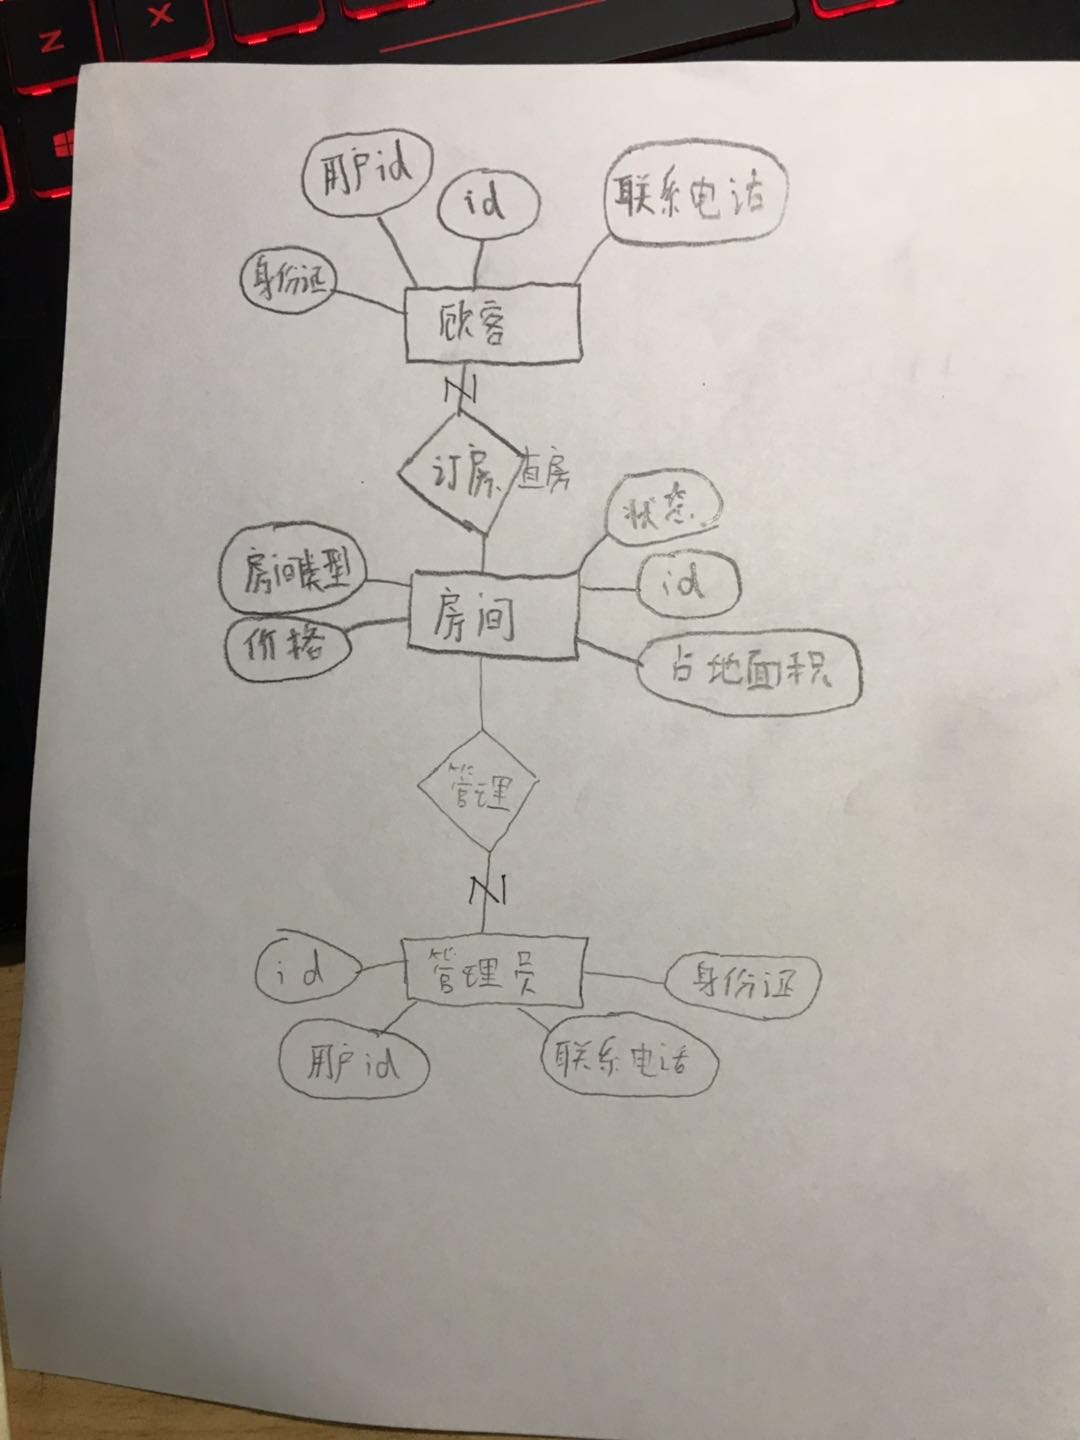 Z
X
用户id
id
联系电话
身份证
顾客
N
订房、查房
状态
房间类型
id
房间
价格
占地面积
管理
N
id
管理员
身份证
用户id
联系电话